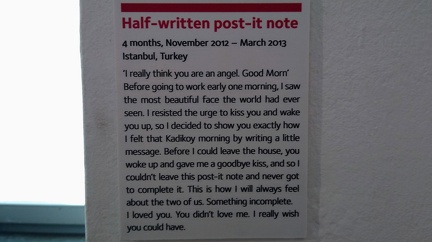 Half-written post-it note
4 months, November 2012 – March 2013
Istanbul, Turkey
'I really think you are an angel. Good Morn'
Before going to work early one morning, I saw
the most beautiful face the world had ever
seen. I resisted the urge to kiss you and wake
you up, so I decided to show you exactly how
I felt that Kadikoy morning by writing a little
message. Before I could leave the house, you
woke up and gave me a goodbye kiss, and so I
couldn't leave this post-it note and never got
to complete it. This is how I will always feel
about the two of us. Something incomplete.
I loved you. You didn't love me. I really wish
you could have.